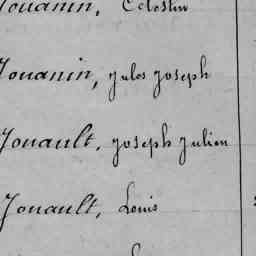 Jouanin, Célestin
Jouanin, Jules Joseph
Jouault, Joseph Julien
Jouault, Louis